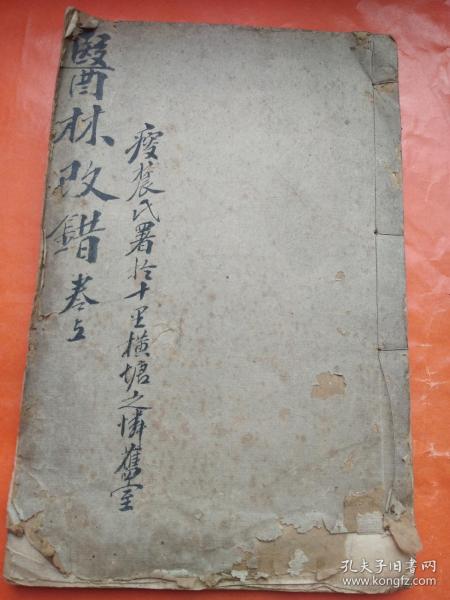 醫林改錯 卷上
瘦農氏署於十里橫塘之憐舊室
孔夫子旧书网
www.kongfz.com